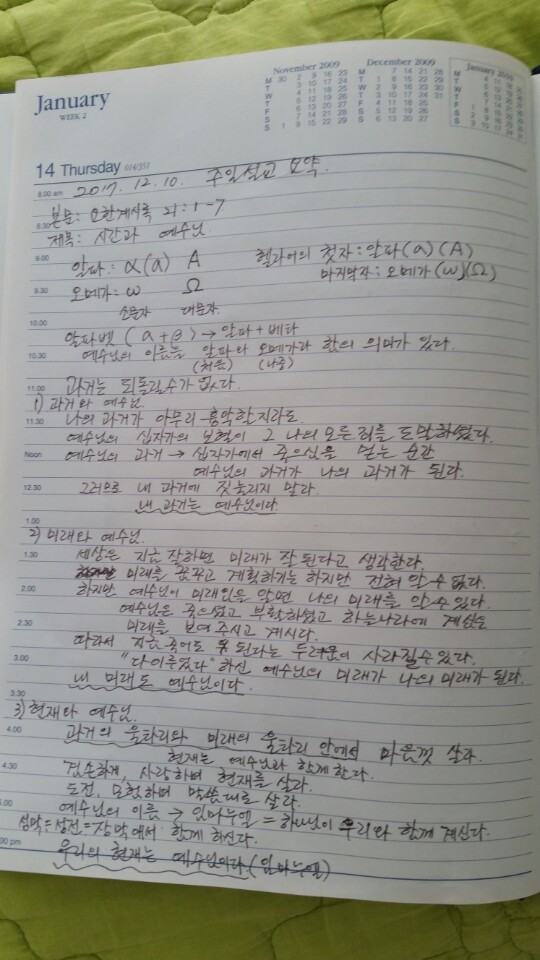 January
WEEK 2
November 2009
M 30 2 9 16 23
T 3 10 17 24
W 4 11 18 25
T 5 12 19 26
F 6 13 20 27
S 7 14 21 28
S 1 8 15 22 29
December 2009
M 7 14 21 28
T 1 8 15 22 29
W 2 9 16 23 30
T 3 10 17 24 31
F 4 11 18 25
S 5 12 19 26
S 6 13 20 27
January 2010
14 Thursday 014/351
8.00 am 2017. 12. 10. 주일설교 요약.
본문: 요한계시록 21:1-7
8.30
제목: 시간과 예수님
9.00 알파: α(a) A 헬라어의 첫자: 알파(a)(A)
9.30 오메가: ω Ω 마지막자: 오메가(ω)(Ω)
소문자 대문자
10.00
알파벳 (a+β) → 알파+베타
10.30 예수님의 이름은 알파와 오메가라 함의 의미가 있다.
(처음) (나중)
11.00 과거는 되돌릴수가 없다.
1) 과거와 예수님
11.30 나의 과거가 아무리 흉악할지라도
예수님의 십자가의 보혈이 그 나의 모든 죄를 도말하셨다.
Noon 예수님의 과거 → 십자가에서 죽으심을 믿는 순간
예수님의 과거가 나의 과거가 된다.
12.30 그러므로 내 과거에 짓눌리지 말라.
내 과거는 예수님이다.
1.00
2) 미래와 예수님.
1.30 세상은 지금 잘하면 미래가 잘 된다고 생각한다.
미래를 꿈꾸고 계획하기는 하지만 전혀 알 수 없다.
2.00 하지만 예수님이 미래임을 알면 나의 미래를 알 수 있다.
예수님은 죽으셨고 부활하셨고 하늘나라에 계심을
2.30 미래를 보여 주시고 계시다.
따라서 지금 죽어도 된다는 두려움이 사라질수 있다.
3.00 "다 이루었다" 하신 예수님의 미래가 나의 미래가 된다.
내 미래도 예수님이다.
3.30
3) 현재와 예수님.
4.00 과거의 울타리와 미래의 울타리 안에서 마음껏 살라.
현재는 예수님과 함께 한다.
4.30 겸손하게, 사랑하며 현재를 살라.
도전, 모험하며 말씀대로 살라.
5.00 예수님의 이름 → 임마누엘 = 하나님이 우리와 함께 계신다.
성막=성전=장막에서 함께 하신다.
우리의 현재는 예수님이다.(임마누엘)